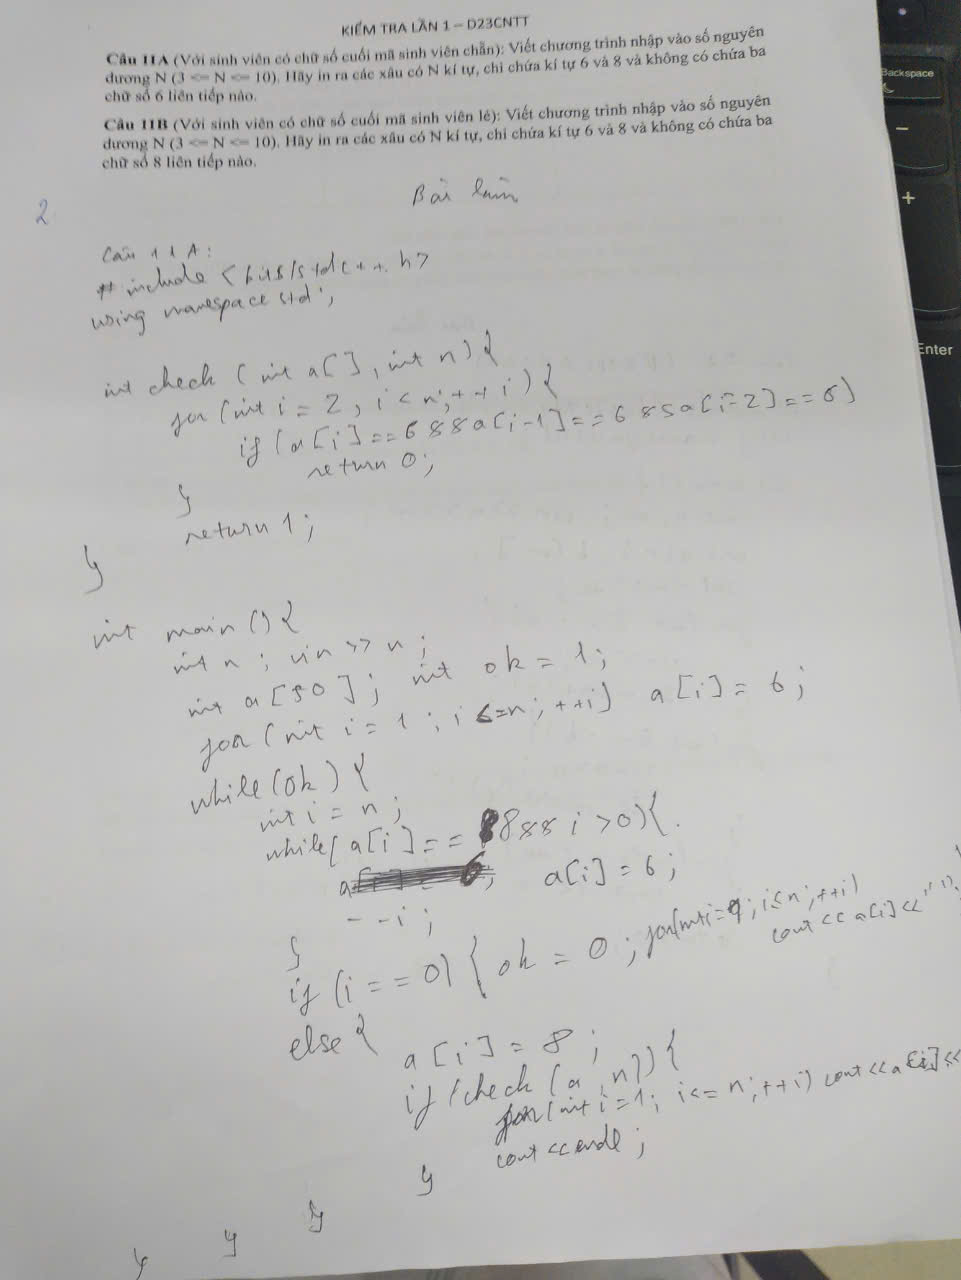 KIỂM TRA LẦN 1 – D23CNTT
Câu 11A (Với sinh viên có chữ số cuối mã sinh viên chẵn): Viết chương trình nhập vào số nguyên
dương N (3 <= N <= 10). Hãy in ra các xâu có N kí tự, chỉ chứa kí tự 6 và 8 và không có chứa ba
chữ số 6 liên tiếp nào.
Câu 11B (Với sinh viên có chữ số cuối mã sinh viên lẻ): Viết chương trình nhập vào số nguyên
dương N (3 <= N <= 10). Hãy in ra các xâu có N kí tự, chỉ chứa kí tự 6 và 8 và không có chứa ba
chữ số 8 liên tiếp nào.
Bài làm
2
Câu 11A:
#include <bits/stdc++.h>
using namespace std;
int check (int a[], int n) {
for (int i = 2, i < n; ++i) {
if (a[i] == 6 && a[i-1] == 6 && a[i-2] == 6)
return 0;
}
return 1;
}
int main () {
int n; cin >> n;
int a[50]; int ok = 1;
for (int i = 1; i <= n; ++i) a[i] = 6;
while (ok) {
int i = n;
while (a[i] == 8 && i > 0) {
a[i] = 6;
--i;
}
if (i == 0) { ok = 0; for(int i=1; i<=n; ++i)
cout << a[i] <<
else {
a[i] = 8;
if (check (a, n)) {
for (int i = 1; i <= n; ++i) cout << a[i] <<
cout << endl;
}
}
}
}
Backspace
Enter